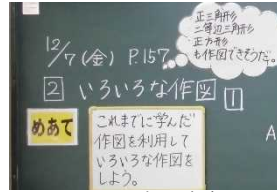 正三角形
二等辺三角形
正方形
も作図できそうだ。
12/7(金) P.157
2 いろいろな作図 1
めあて
これまでに学んだ
作図を利用して
いろいろな作図を
しよう。
A